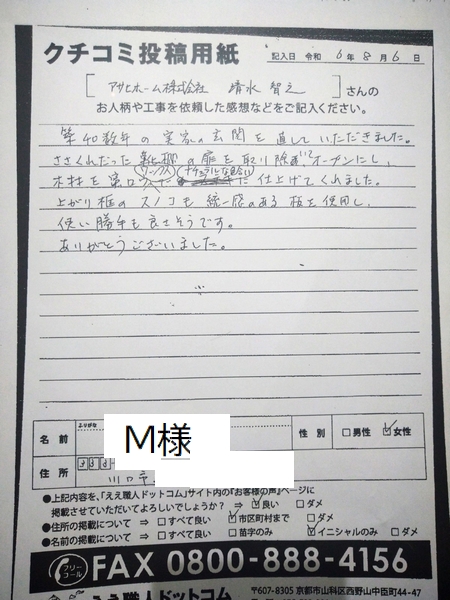 クチコミ投稿用紙
記入日 令和 6年 8月 6日
[アサヒホーム株式会社 清水 智之]さんの
お人柄や工事を依頼した感想などをご記入ください。
築40数年の実家の玄関を直していただきました。
ささくれだった靴棚の扉を取り除いてオープンにし、
木材を蜜ロウワックスで ナチュラルな色合いに仕上げてくれました。
上がり框のスノコも統一感のある板を使用し、
使い勝手も良さそうです。
ありがとうございました。
ふりがな
名前
M様
性別
□男性
☑女性
住所
333-
川口市
●上記内容を、「ええ職人ドットコム」サイト内の「お客様の声」ページに
掲載させていただいてよろしいでしょうか? ⇒ ☑良い □ダメ
●住所の掲載について ⇒ □すべて良い ☑市区町村まで □ダメ
●名前の掲載について ⇒ □すべて良い □苗字のみ ☑イニシャルのみ □ダメ
フリーコール
FAX 0800-888-4156
ええ職人ドットコム
〒607-8305 京都市山科区西野山中臣町44-47